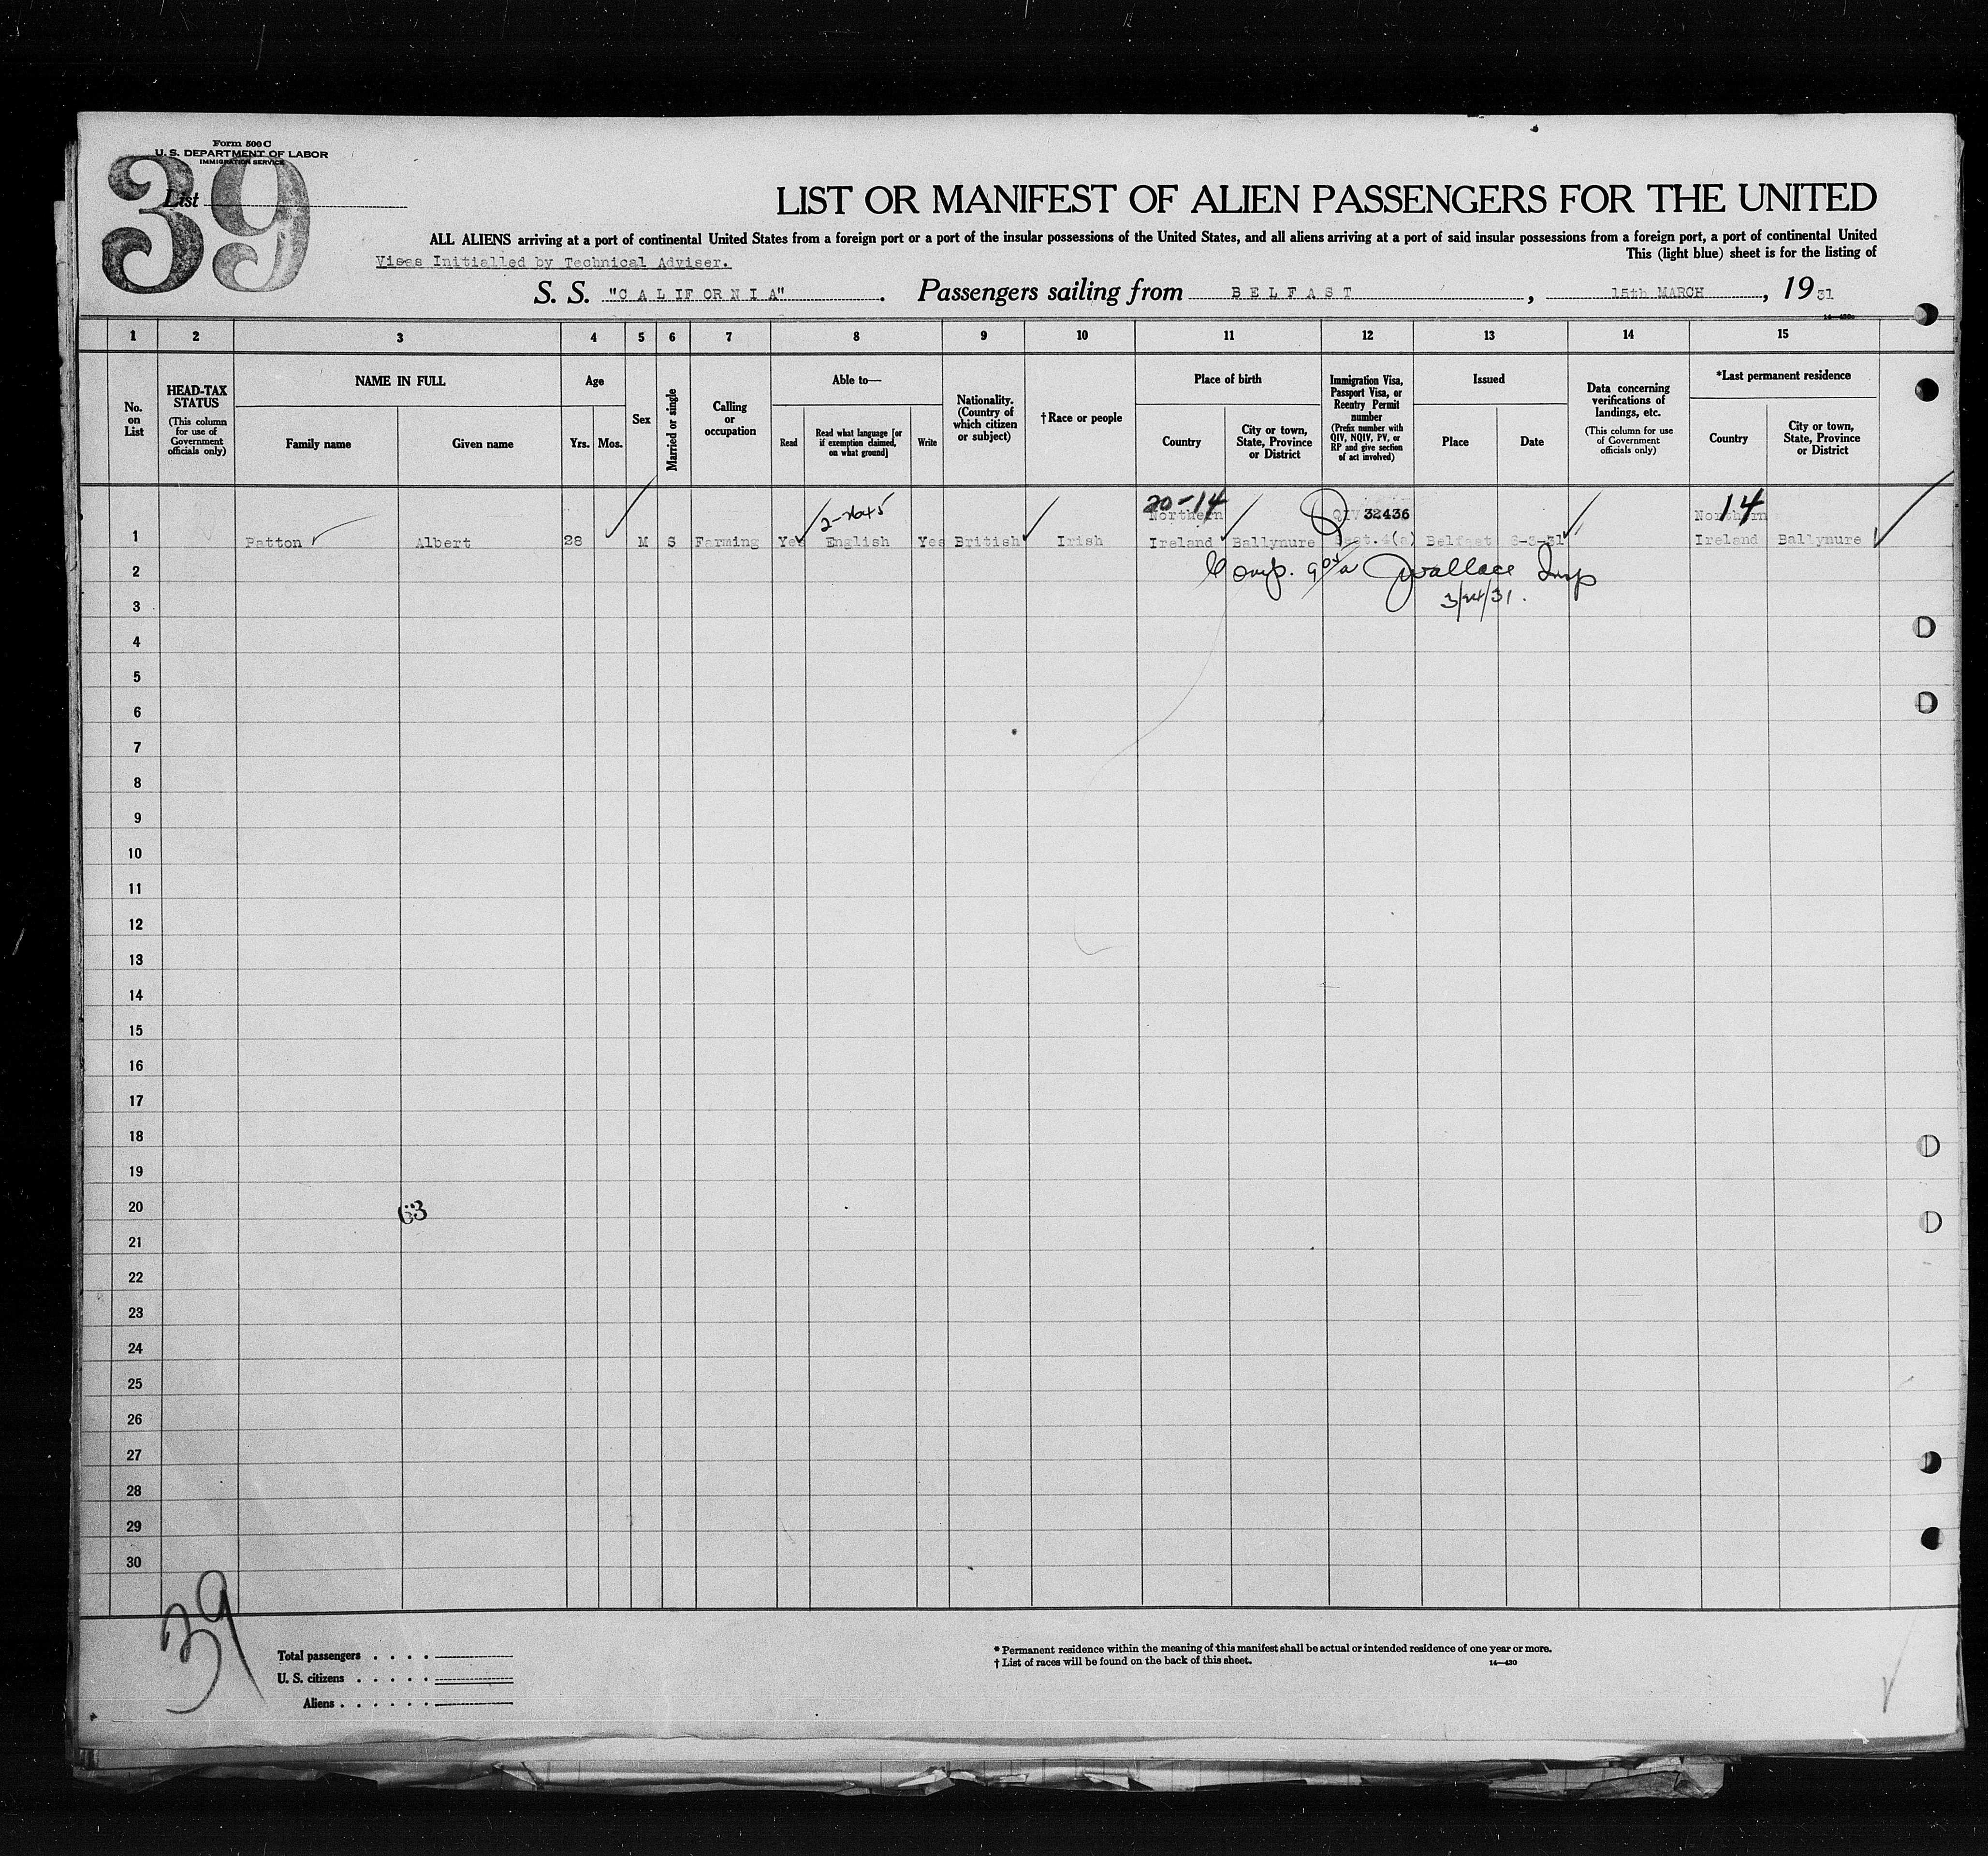 Form 500 C
U. S. DEPARTMENT OF LABOR
IMMIGRATION SERVICE
39
List
LIST OR MANIFEST OF ALIEN PASSENGERS FOR THE UNITED
ALL ALIENS arriving at a port of continental United States from a foreign port or a port of the insular possessions of the United States, and all aliens arriving at a port of said insular possessions from a foreign port, a port of continental United
Visas Initialled by Technical Adviser.
This (light blue) sheet is for the listing of
S. S. "CALIFORNIA". Passengers sailing from BELFAST, 15th MARCH, 1931
1 2 3 4 5 6 7 8 9 10 11 12 13 14 15
No. on List
HEAD-TAX STATUS (This column for use of Government officials only)
NAME IN FULL
Family name
Given name
Age
Yrs. Mos.
Sex
Married or single
Calling or occupation
Able to—
Read
Read what language [or if exemption claimed, on what ground]
Write
Nationality. (Country of which citizen or subject)
†Race or people
Place of birth
Country
City or town, State, Province or District
Immigration Visa, Passport Visa, or Reentry Permit number (Prefix number with QIV, NQIV, PV, or RP and give section of act involved)
Issued
Place
Date
Data concerning verifications of landings, etc. (This column for use of Government officials only)
*Last permanent residence
Country
City or town, State, Province or District
20-14 14
Northern QIV 32436 Northern
1 Patton Albert 28 M S Farming Yes English Yes British Irish Ireland Ballynure Sect.4(a) Belfast 3-31 Ireland Ballynure
2 Comp. Wallace Insp
3 3/24/31.
4
5
6
7
8
9
10
11
12
13
14
15
16
17
18
19
20 63
21
22
23
24
25
26
27
28
29
30
39
Total passengers
U. S. citizens
Aliens
* Permanent residence within the meaning of this manifest shall be actual or intended residence of one year or more.
† List of races will be found on the back of this sheet. 14—430